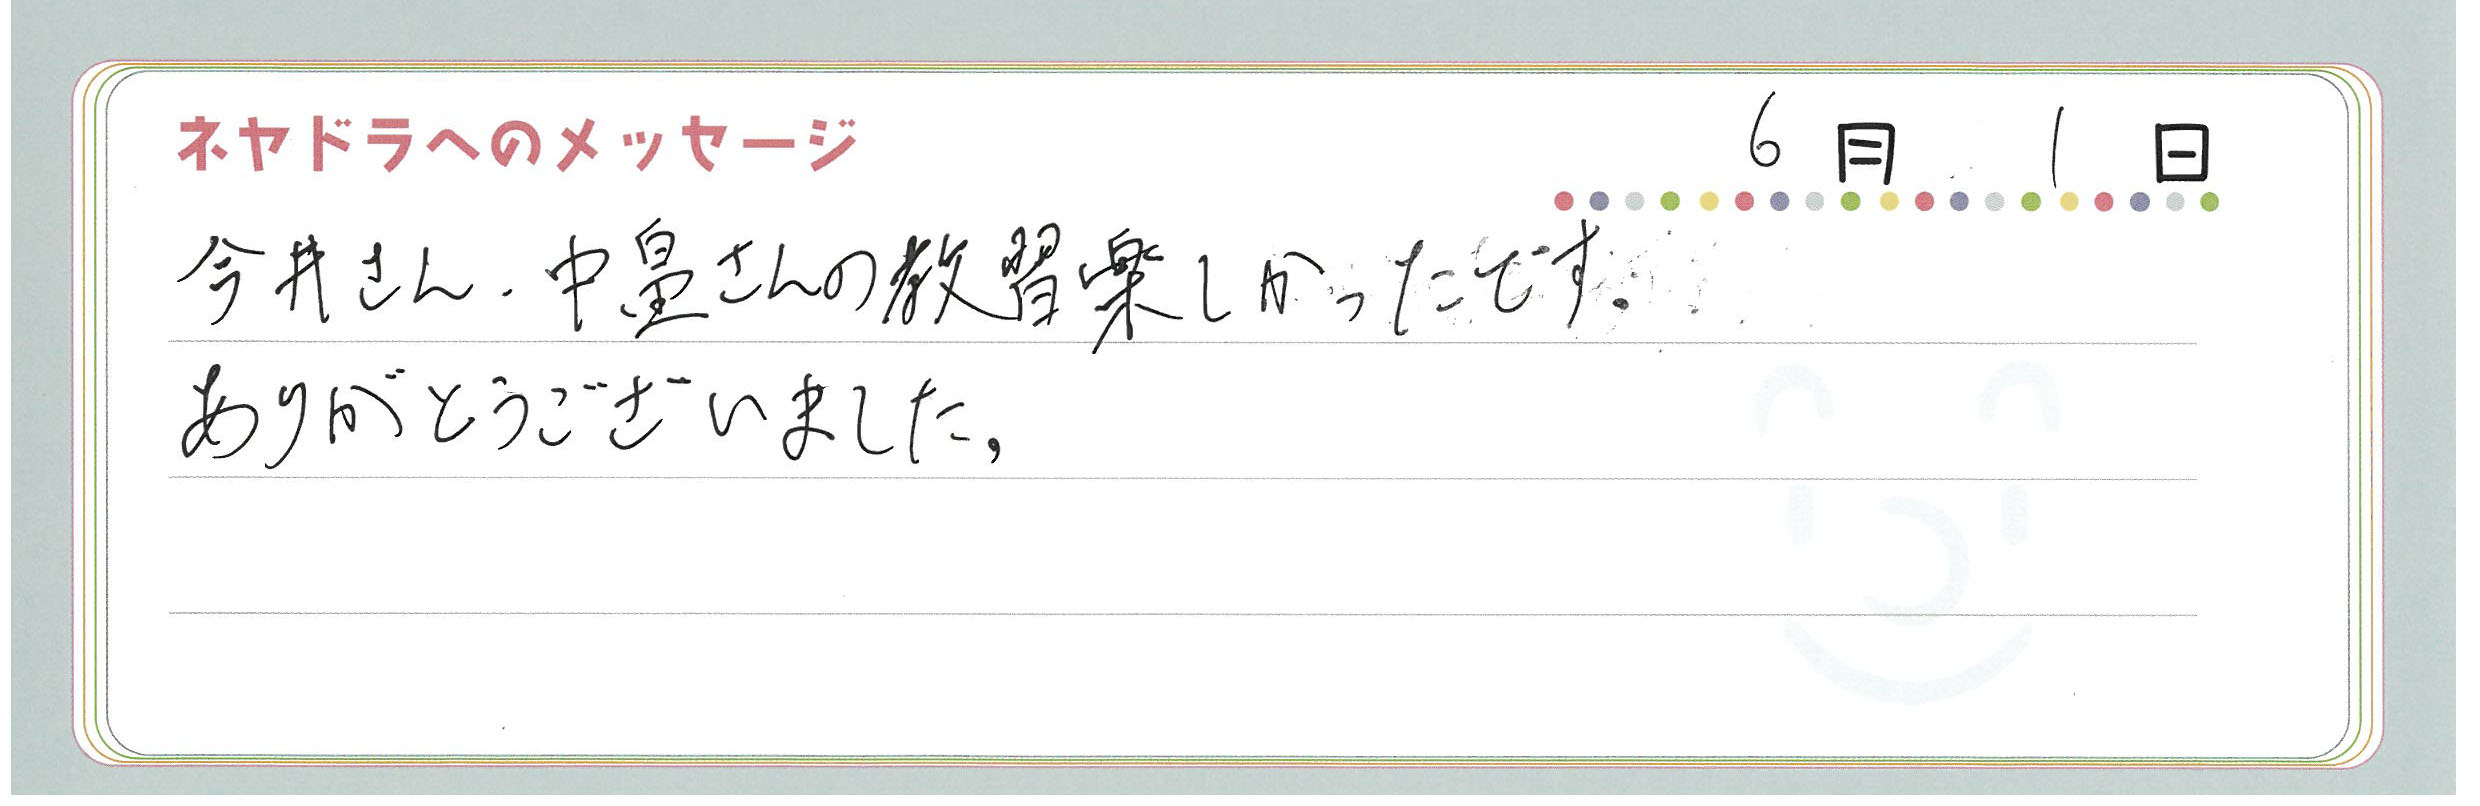 ネヤドラへのメッセージ
6月1日
今井さん.中畠さんの教習楽しかったです.
ありがとうございました,